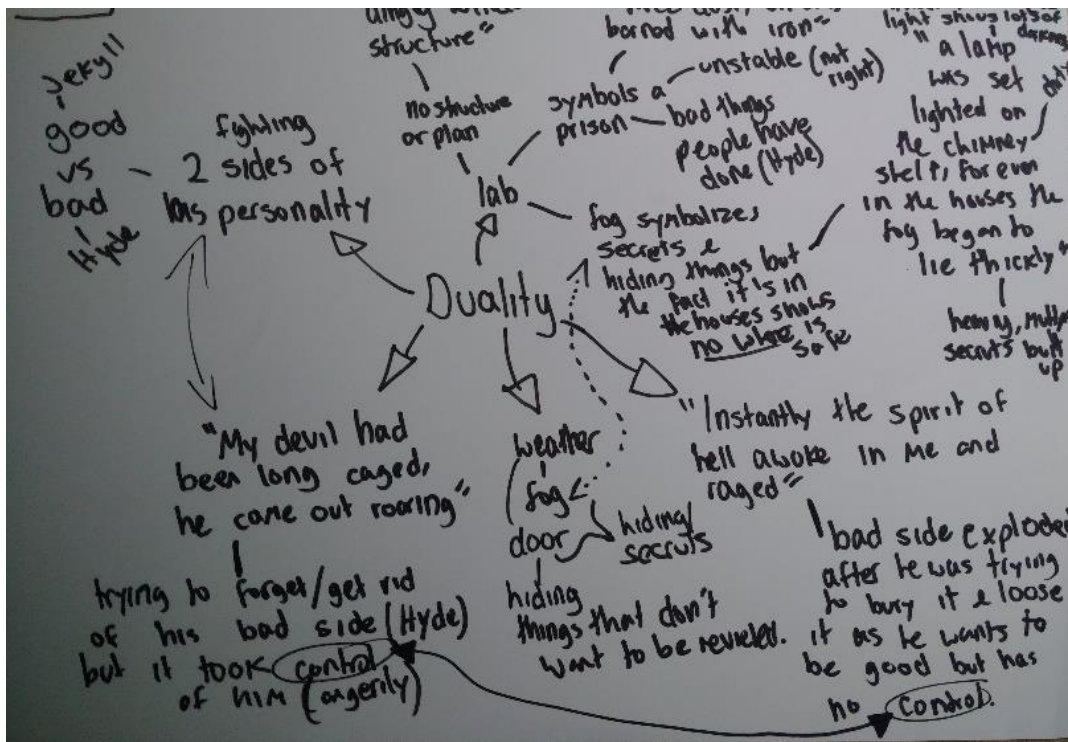 Jekyll
good
vs
bad
Hyde
fighting
2 sides of
his personality
structure"
no structure
or plan
lab
barred with iron"
symbols a
prison
unstable (not
right)
bad things
people have
done (Hyde)
fog symbolizes
secrets &
hiding things but
the fact it's in
the houses shows
no where is
safe
light shows lots of
darkness
"a lamp
was set
lighted on
the chimney
shelf, for even
in the houses the
fog began to
lie thickly"
heavy,
secruts built
up
Duality
"My devil had
been long caged,
he came out roaring"
trying to forget/get rid
of his bad side (Hyde)
but it took control
of him (angerily)
weather
fog
door
hiding/
secruts
hiding
things that don't
want to be reveled.
"Instantly the spirit of
hell awoke in me and
raged"
bad side exploded
after he was trying
to bury it & loose
it as he wants to
be good but has
no control.